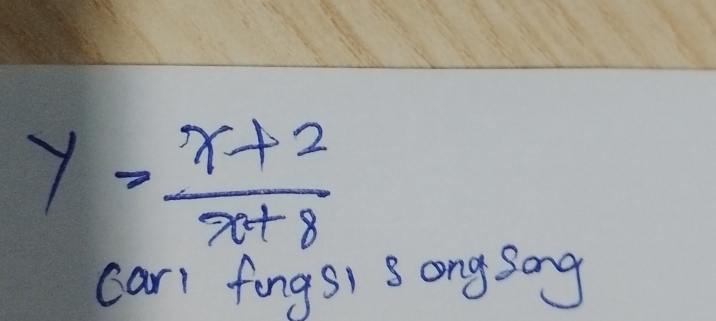 y = x+2/x+8
cari fungsi songsong